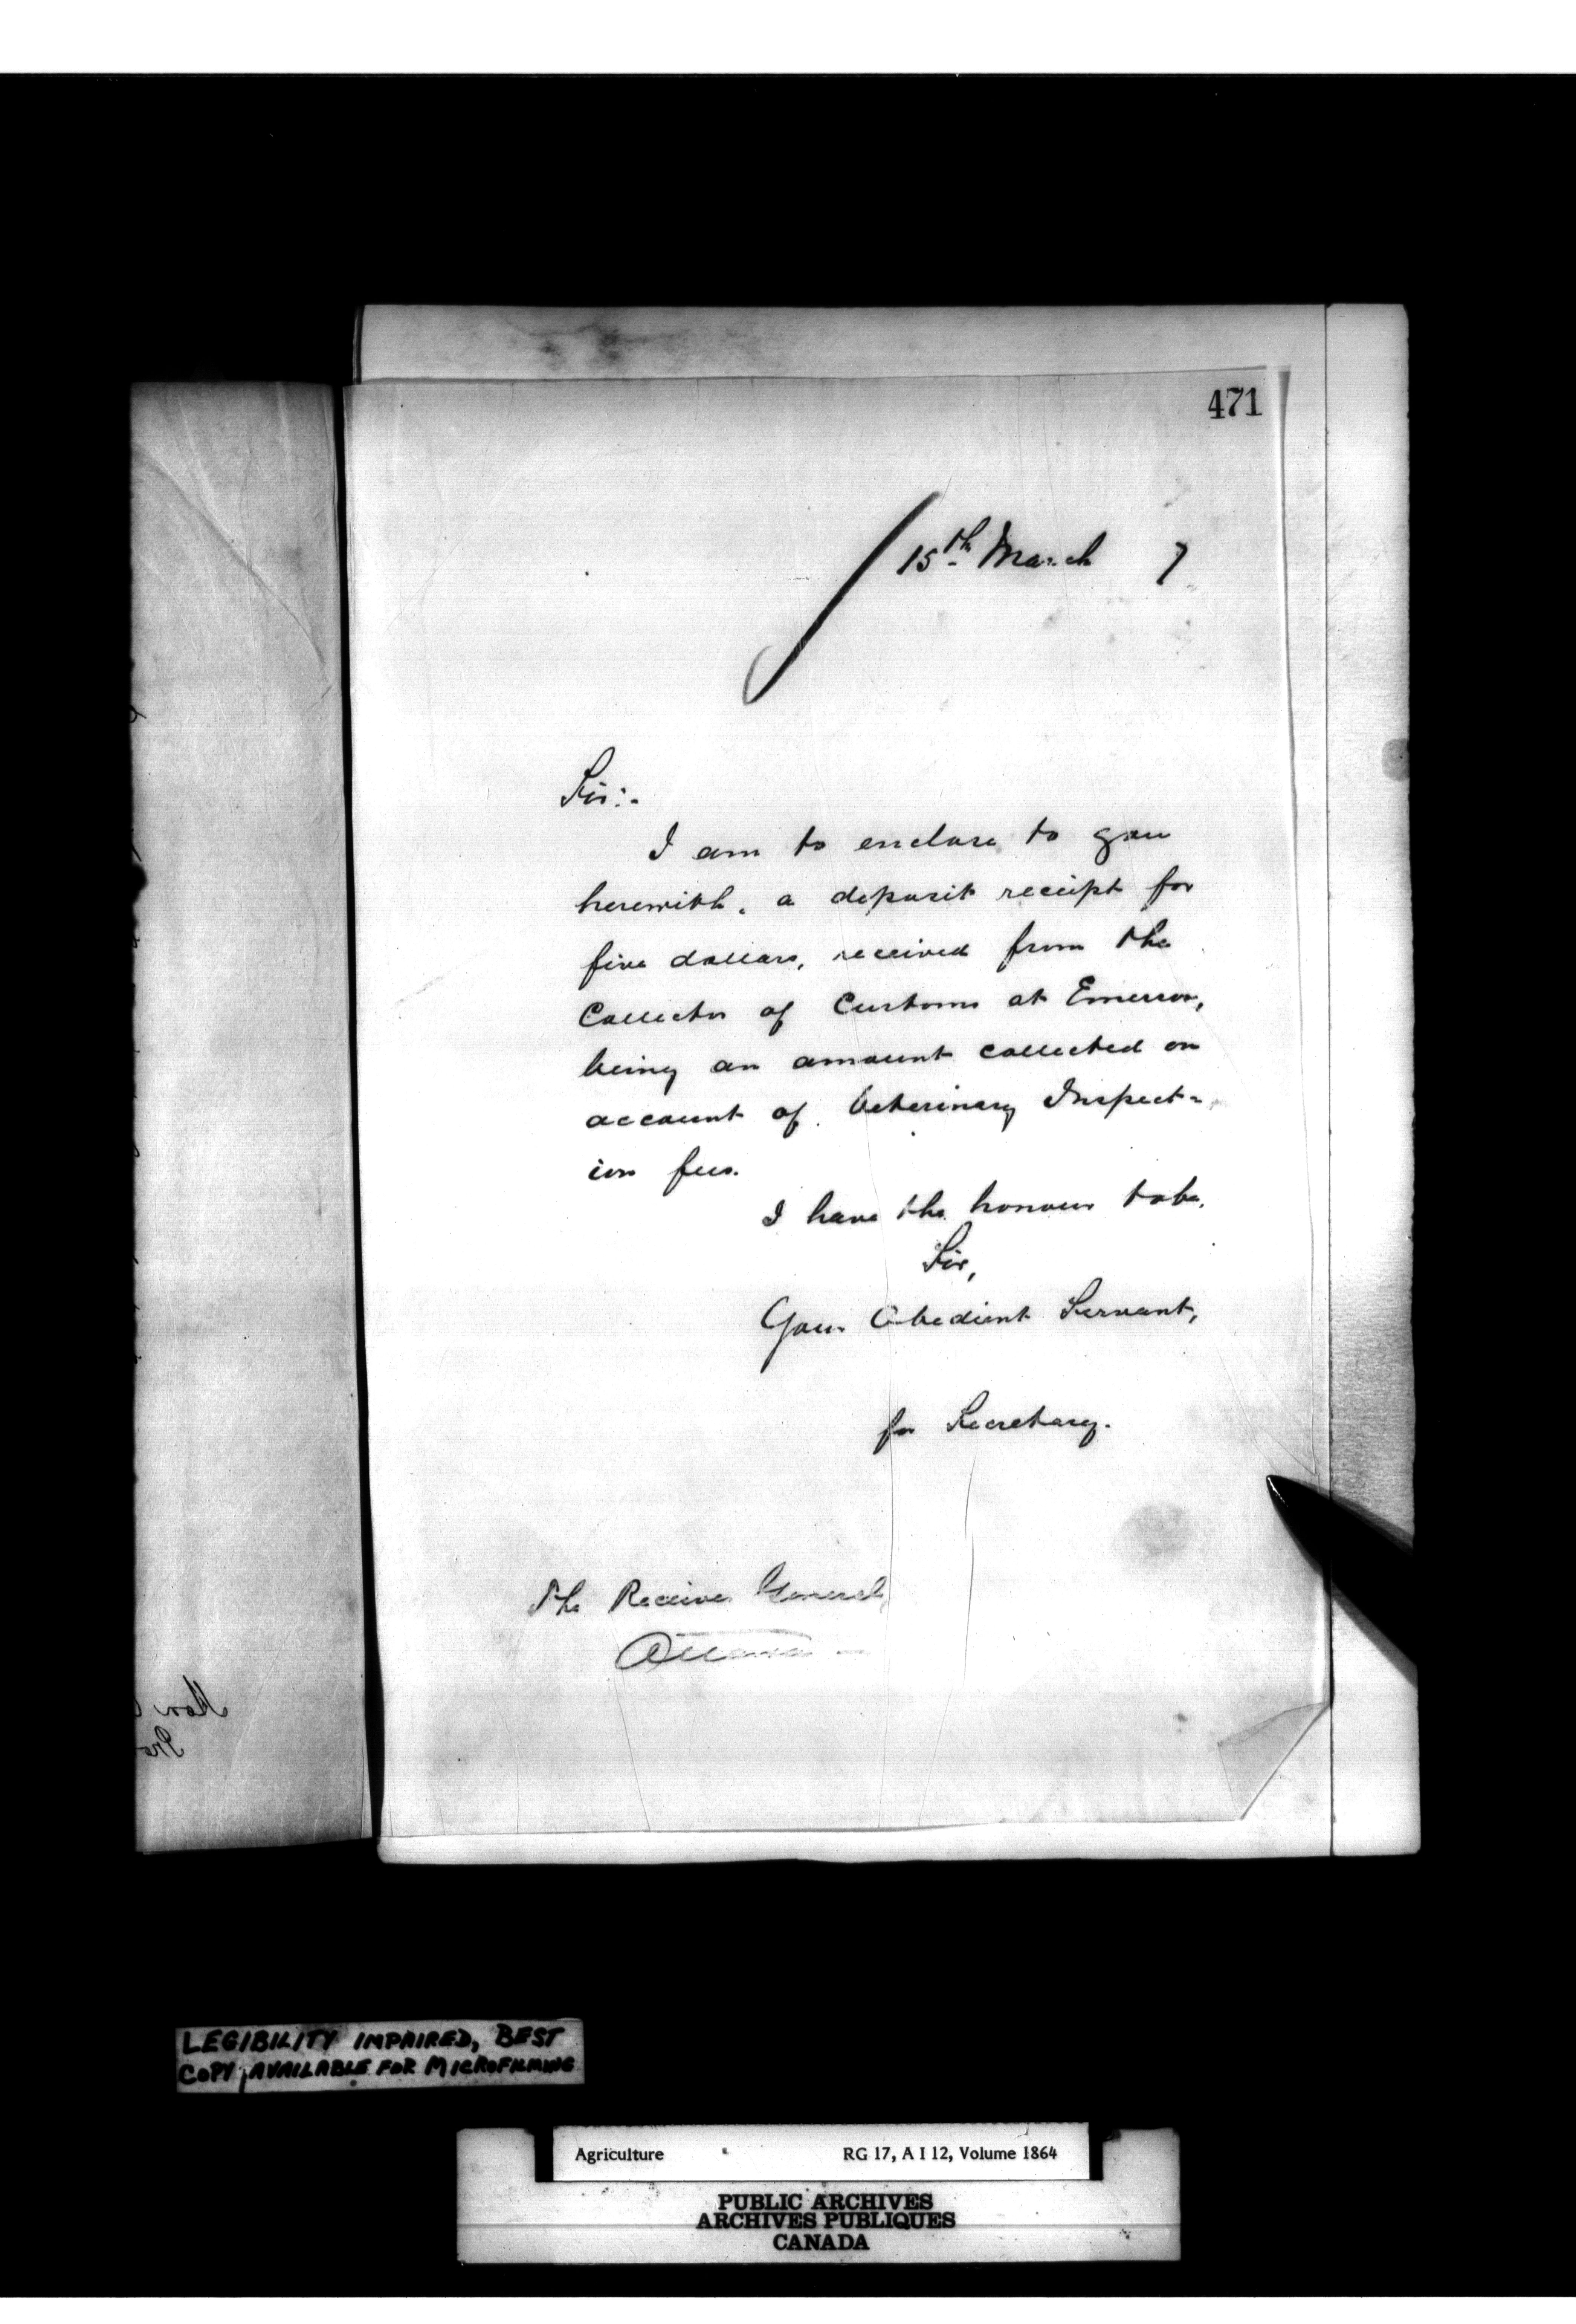 471
15th March 7
Sir:-
I am to enclose to you
herewith, a deposit receipt for
five dollars, received from the
Collector of Customs at Emerson,
being an amount collected on
account of Veterinary Inspect-
ion fees.
I have the honour to be,
Sir,
Your Obedient Servant,
for Secretary.
The Receiver General,
Ottawa
LEGIBILITY IMPAIRED, BEST
COPY AVAILABLE FOR MICROFILMING
Agriculture RG 17, A I 12, Volume 1864
PUBLIC ARCHIVES
ARCHIVES PUBLIQUES
CANADA